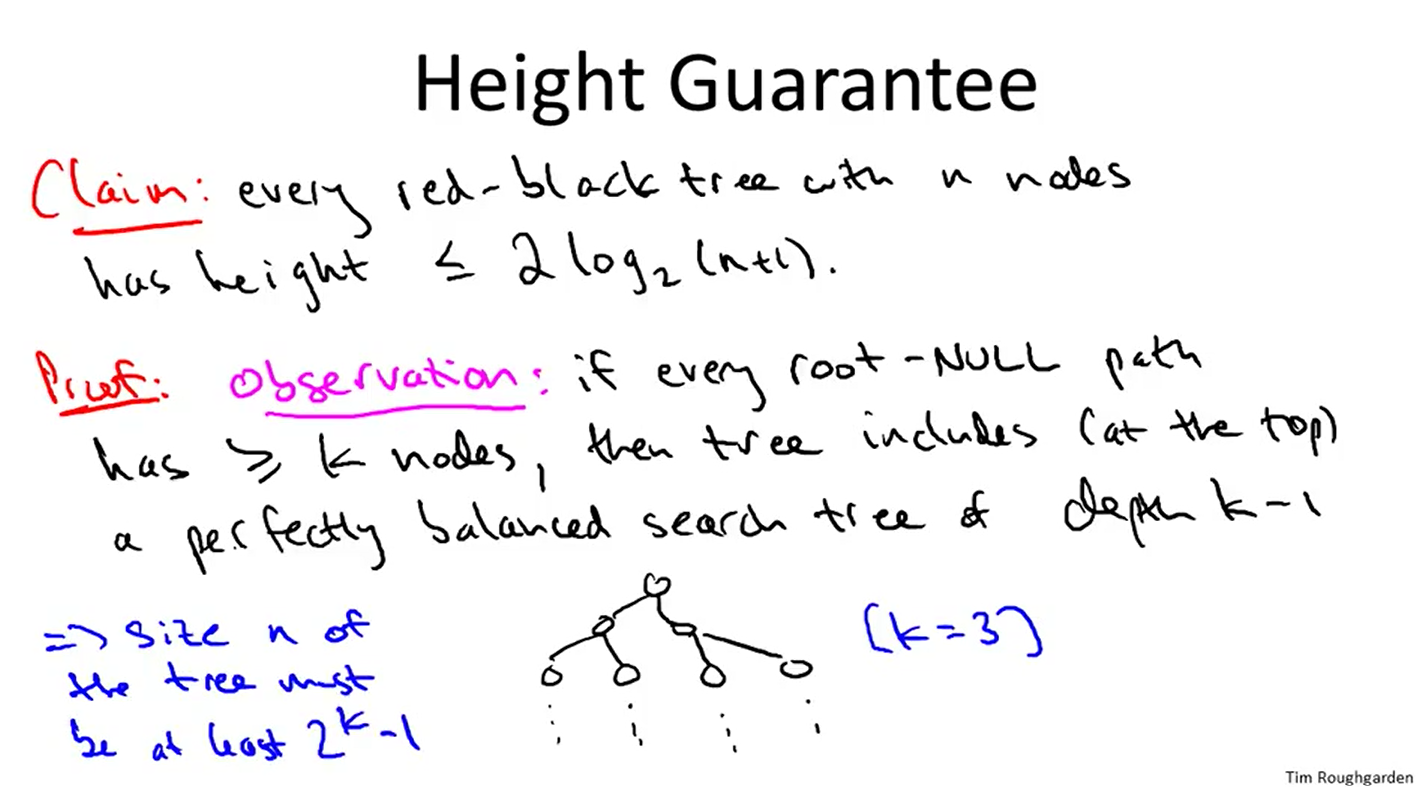 Height Guarantee
Claim: every red-black tree with n nodes
has height ≤ 2 log₂ (n+1).
Proof: Observation: if every root-NULL path
has ≥ k nodes, then tree includes (at the top)
a perfectly balanced search tree of depth k-1
=> size n of
the tree must
be at least 2ᵏ-1
(k=3)
Tim Roughgarden